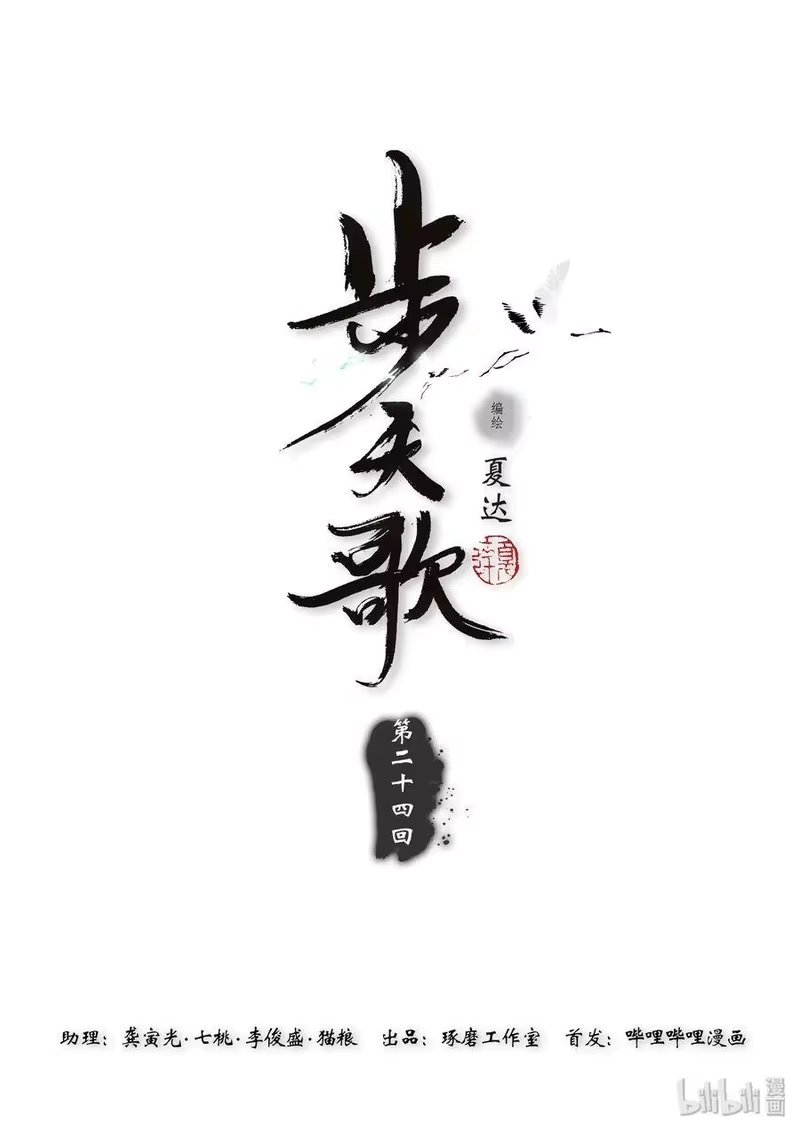 步天歌
编绘
夏达
第二十四回
助理：龚寅光·七桃·李俊盛·猫粮 出品：琢磨工作室 首发：哔哩哔哩漫画
bilibili漫画